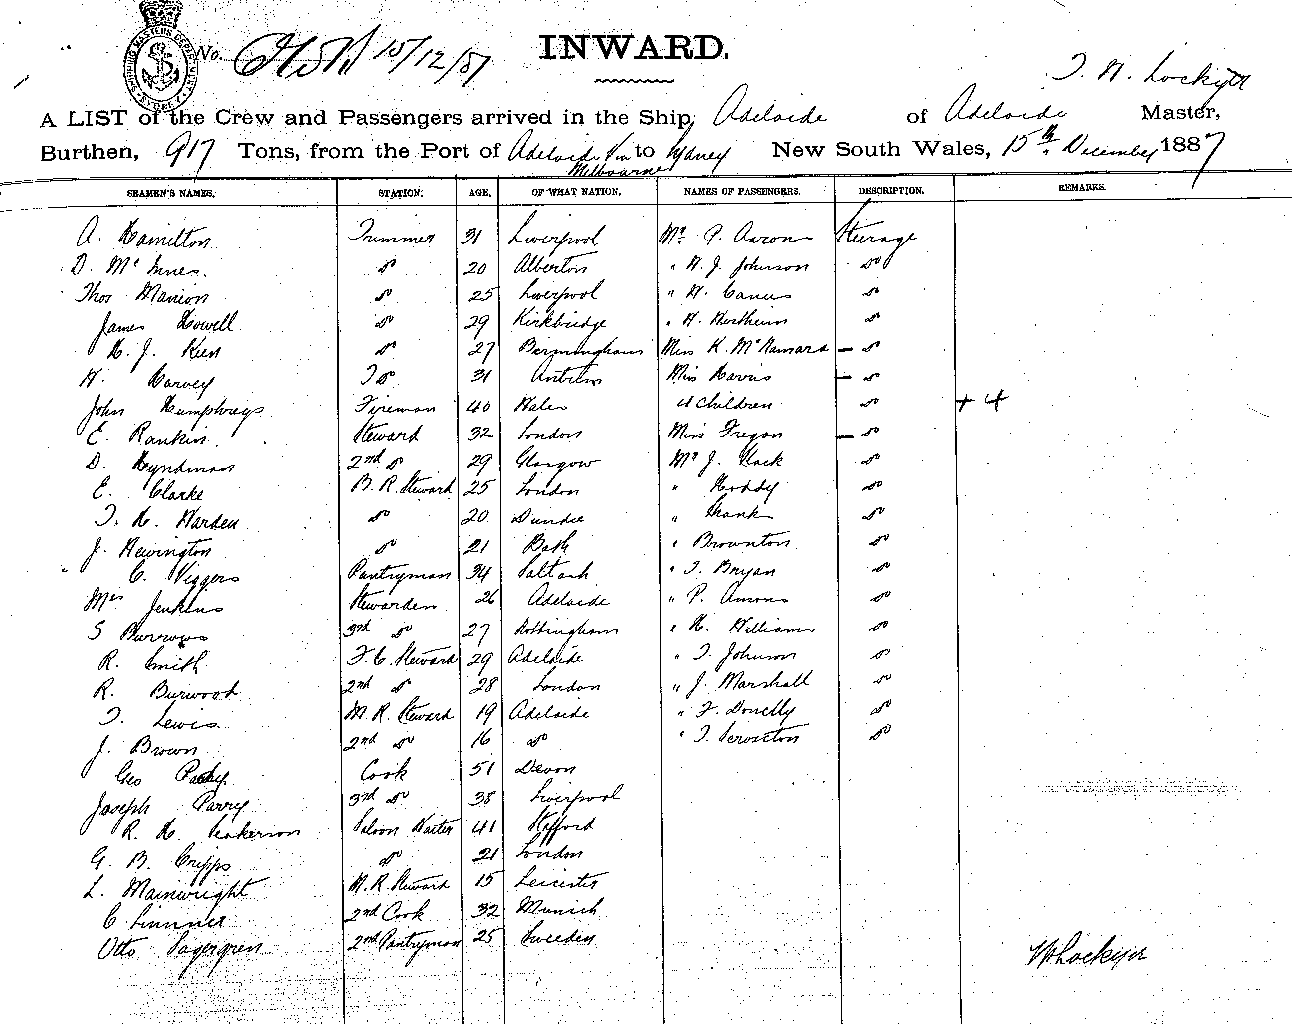 SHIPPING MASTERS DEPARTMENT SYDNEY
No. 15/12/87
INWARD.
Lockyer
A LIST of the Crew and Passengers arrived in the Ship, Adelaide of Adelaide Master,
Burthen, 917 Tons, from the Port of Adelaide via Melbourne to Sydney New South Wales, 15th December 1887
SEAMEN'S NAMES. STATION. AGE. OF WHAT NATION. NAMES OF PASSENGERS. DESCRIPTION. REMARKS.
A. Hamilton Trimmer 31 Liverpool Mr. P. Aarons Steerage
D. McInnes. do 20 Alberton " W. J. Johnson do
Thos Manion do 25 Liverpool " do
James Howell do 29 Kirkbridge " do
H. J. Keen do 27 Birmingham Miss K. McNamara – do
W. Harvey do 31 Antrim Miss Harris – do
John Humphreys Fireman 40 Wales 4 Children do + 4
E. Rankin. Steward 32 London Miss Fregon – do
D. Hyndman 2nd do 29 Glasgow Mr J. Hack do
E. Clarke B. R. Steward 25 London " Hoddy do
T. H. Warden do 20 Dundee " Shank do
J. Newington do 21 Bath " Brownton do
C. Viggers Pantryman 34 Saltash " T. Bryan do
Mrs Jenkins Stewardess 26 Adelaide " P. Amons do
S Burrows 3rd do 27 Nottingham " H. Williams do
R. Smith F. C. Steward 29 Adelaide " T. Johnson do
R. Burwood 2nd do 28 London " J. Marshall do
T. Lewis. M. R. Steward 19 Adelaide " F. Donelly do
J. Brown 2nd do 16 do " T. do
Geo Cook 51 Devon
Joseph Parry 3rd do 38 Liverpool
R. H. Saloon Waiter 41 Stafford
G. B. Cripps do 21 London
L. Mainwright M. R. Steward 15 Leicester
C. 2nd Cook 32 Munich
Otto Sagergren 2nd Pantryman 25 Sweeden
Lockyer